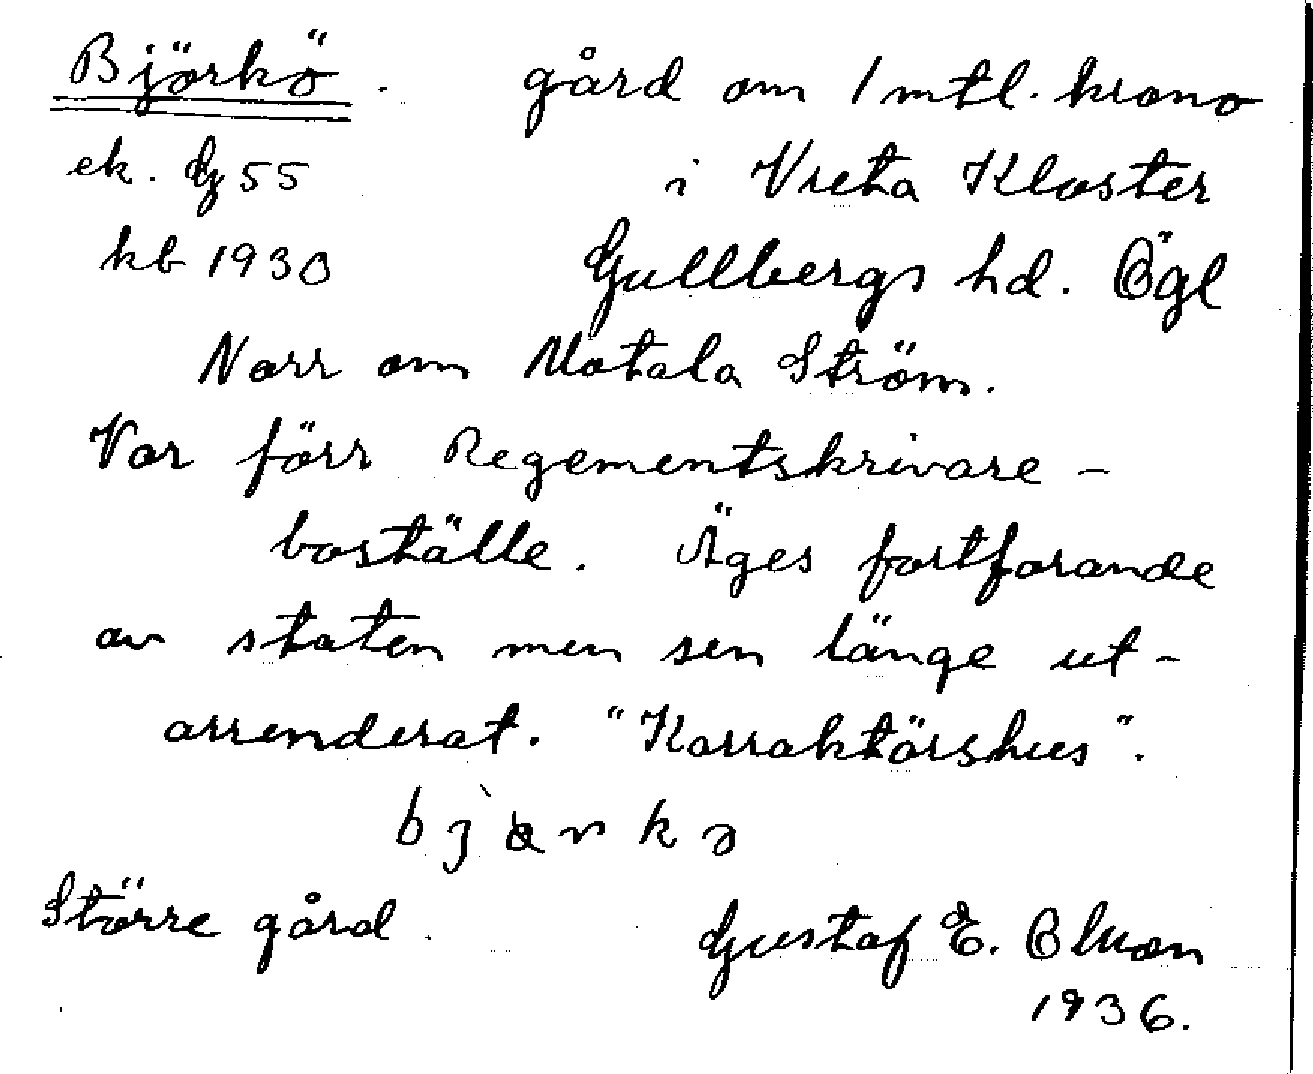 Björkö. gård om 1 mtl. krono
ek. Lg 55 i Vreta Kloster
kb 1930 Gullbergs hd. Ögl
Norr om Motala Ström.
Var förr Regementskrivare-
boställe. Äges fortfarande
av staten men sen länge ut-
arrenderat. "Karraktärshus".
Större gård. Gustaf E.
1936.